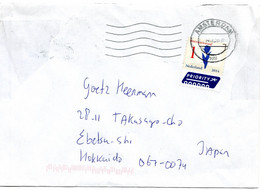 AMSTERDAM
1
Nederland
PRIORITY
Goetz Heermann
28-11 Takasago-cho
Ebetsu-shi
Hokkaido 067-0074
Japan